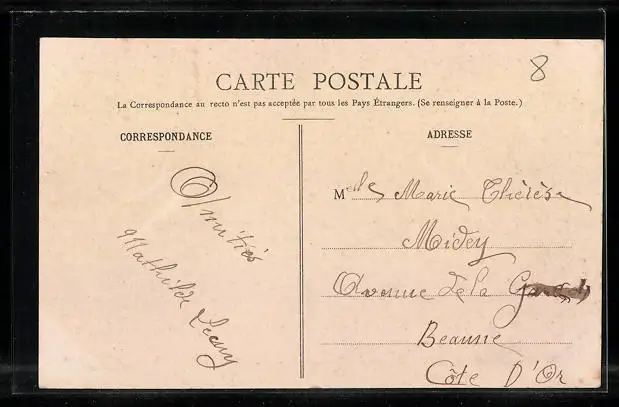 8
CARTE POSTALE
La Correspondance au recto n'est pas acceptée par tous les Pays Étrangers. (Se renseigner à la Poste.)
CORRESPONDANCE
ADRESSE
Amitiés
Mathilde
Melle Marie Thérèse
Midey
Avenue de la
Beaune
Côte D'Or